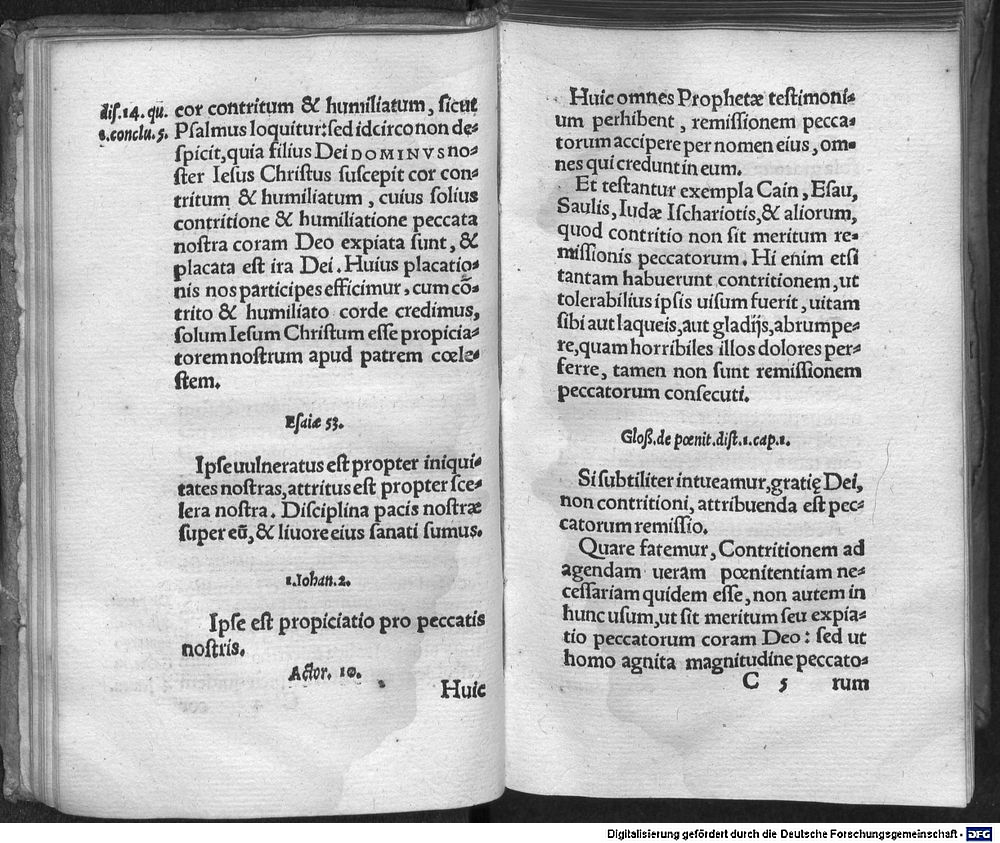 diſ.14. qu.
1.conclu.5.
cor contritum & humiliatum, ſicut
Pſalmus loquitur: ſed idcirco non de⸗
ſpicit, quia filius Dei DOMINVS no⸗
ſter Ieſus Chriſtus ſuſcepit cor con⸗
tritum & humiliatum, cuius ſolius
contritione & humiliatione peccata
noſtra coram Deo expiata ſunt, &
placata eſt ira Dei. Huius placatio⸗
nis nos participes efficimur, cum cō⸗
trito & humiliato corde credimus,
ſolum Ieſum Chriſtum eſſe propicia⸗
torem noſtrum apud patrem cœle⸗
ſtem.
Eſaiæ 53.
Ipſe uulneratus eſt propter iniqui⸗
tates noſtras, attritus eſt propter ſce⸗
lera noſtra. Diſciplina pacis noſtræ
ſuper eū, & liuore eius ſanati ſumus.
1.Iohan.2.
Ipſe eſt propiciatio pro peccatis
noſtris.
Actor. 10.
Huic
Huic omnes Prophetæ teſtimoni⸗
um perhibent, remiſſionem pecca⸗
torum accipere per nomen eius, om⸗
nes qui credunt in eum.
Et teſtantur exempla Cain, Eſau,
Saulis, Iudæ Iſchariotis, & aliorum,
quod contritio non ſit meritum re⸗
miſſionis peccatorum. Hi enim etſi
tantam habuerunt contritionem, ut
tolerabilius ipſis uiſum fuerit, uitam
ſibi aut laqueis, aut gladijs, abrumpe⸗
re, quam horribiles illos dolores per⸗
ferre, tamen non ſunt remiſſionem
peccatorum conſecuti.
Gloſſ. de pœnit. diſt.1.cap.1.
Si ſubtiliter intueamur, gratię Dei,
non contritioni, attribuenda eſt pec⸗
catorum remiſſio.
Quare fatemur, Contritionem ad
agendam ueram pœnitentiam ne⸗
ceſſariam quidem eſſe, non autem in
hunc uſum, ut ſit meritum ſeu expia⸗
tio peccatorum coram Deo: ſed ut
homo agnita magnitudine peccato⸗
C 5 rum
Digitalisierung gefördert durch die Deutsche Forschungsgemeinschaft - DFG